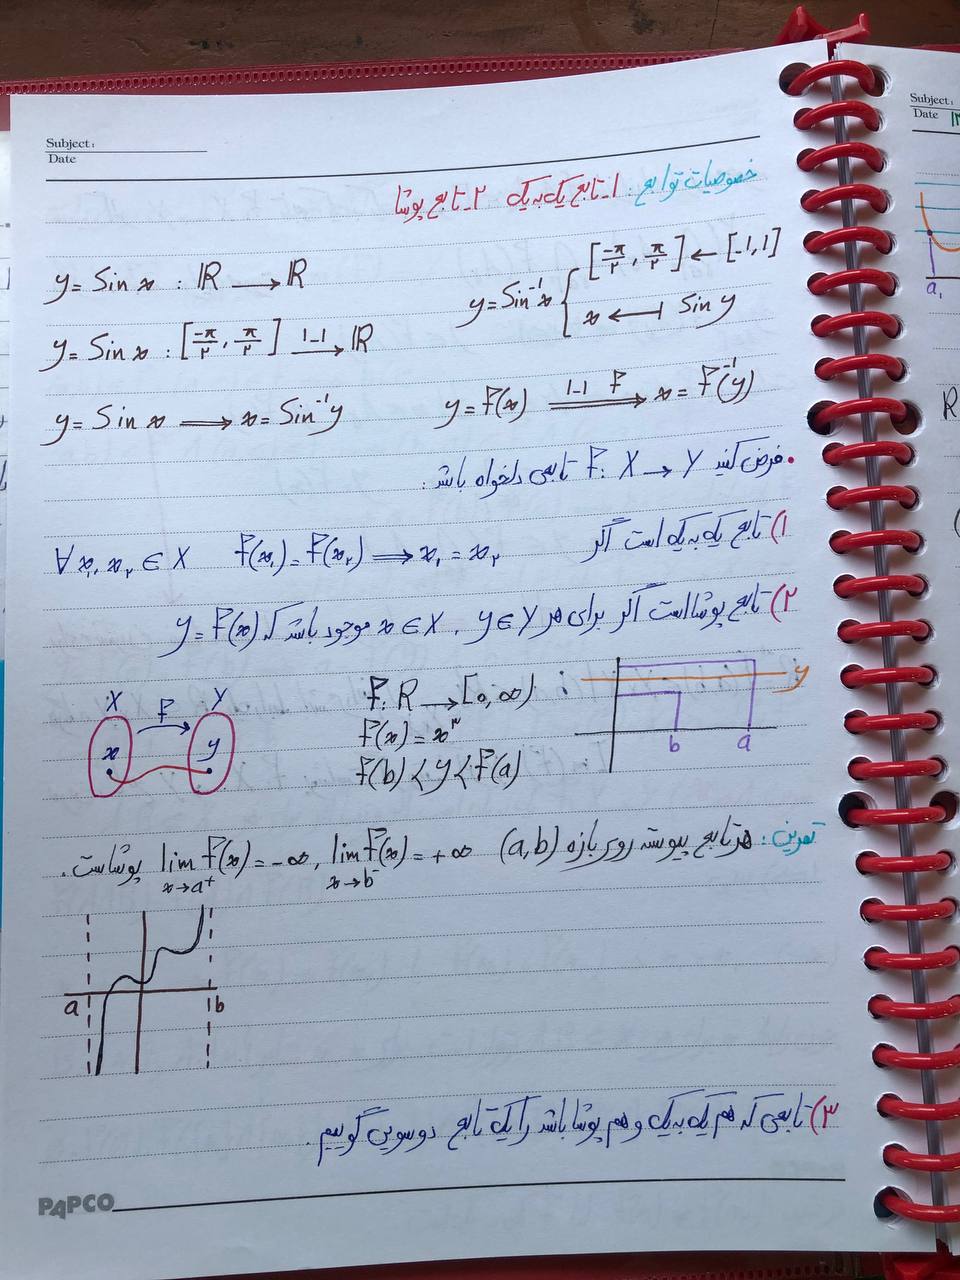 Subject:
Date
خصوصیات توابع: ۱ـ تابع یک به یک ۲ـ تابع پوشا
y = Sin x : ℝ → ℝ
y = Sin⁻¹x { [-π/۲, π/۲] ← [-1, 1]
x ⟻ Sin y
y = Sin x : [-π/۲, π/۲] 1-1→ ℝ
y = Sin x ⟹ x = Sin⁻¹y
y = f(x) 1-1 f ⟹ x = f⁻¹(y)
• فرض کنید f: X → Y تابعی دلخواه باشد:
۱) تابع یک به یک است اگر ∀ x₁, x₂ ∈ X f(x₁) = f(x₂) ⟹ x₁ = x₂
۲) تابع پوشا است اگر برای هر y ∈ Y، x ∈ X موجود باشد که y = f(x)
X f Y
x y
f: R → [0, ∞)
f(x) = x²
f(b) < y < f(a)
y
b a
تمرین: هر تابع پیوسته روی بازه (a, b) lim f(x) = +∞, lim f(x) = -∞ پوشاست.
x→b⁻ x→a⁺
a b
۳) تابعی که هم یک به یک و هم پوشا باشد را یک تابع دوسویی گوییم.
PAPCO
Subject:
Date
a₁
R